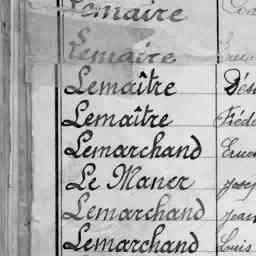 Lemaire
Lemaire
Lemaître Dés
Lemaître Fréde
Lemarchand Ernes
Le Maner Josep
Lemarchand Jean
Lemarchand Louis